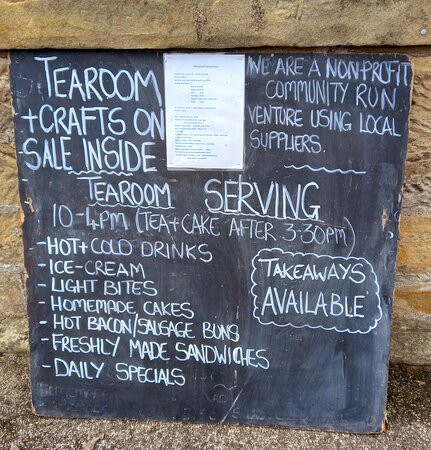 TEAROOM
+CRAFTS ON
SALE INSIDE
WE ARE A NON-PROFIT
COMMUNITY RUN
VENTURE USING LOCAL
SUPPLIERS.
TEAROOM SERVING
10-4PM (TEA+CAKE AFTER 3-30PM)
-HOT+COLD DRINKS
-ICE-CREAM
-LIGHT BITES
-HOMEMADE CAKES
-HOT BACON/SAUSAGE BUNS
-FRESHLY MADE SANDWICHES
-DAILY SPECIALS
TAKEAWAYS
AVAILABLE